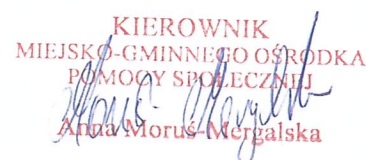 KIEROWNIK
MIEJSKO-GMINNEGO OŚRODKA
POMOCY SPOŁECZNEJ
Anna Moruś-Mergalska